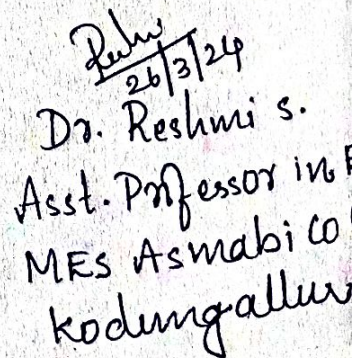 26/3/24
Dr. Reshmi S.
Asst. Professor in
MES Asmabi Co
Kodungallur